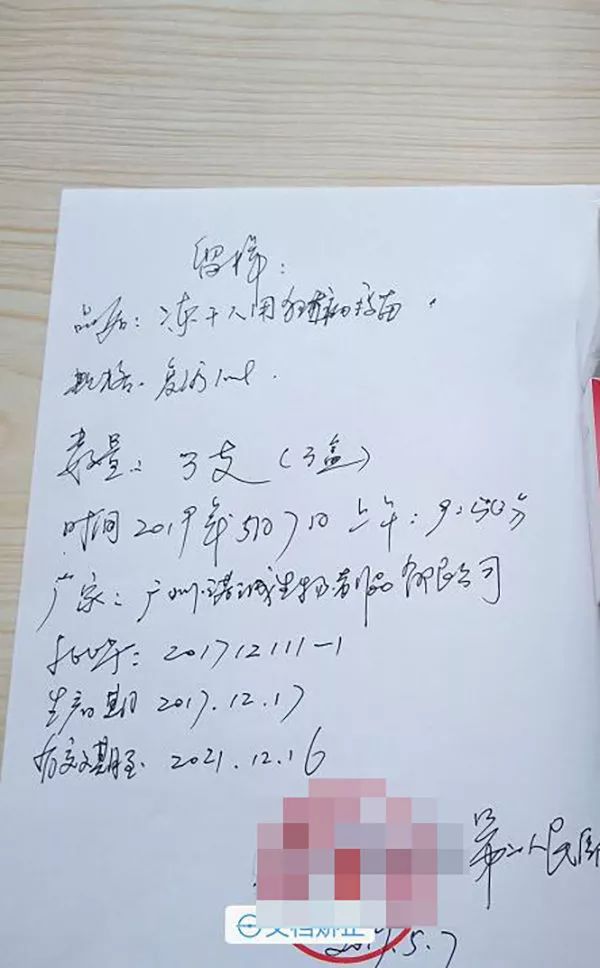 留样：
品名：冻干人用狂犬病疫苗.
规格：复溶1ml.
数量：3支（3盒）
时间2019年5月7日上午：9:50分
厂家：广州诺诚生物制品有限公司
批号：201712111-1
生产日期2017.12.17
有效期至 2021.12.16
第二人民医
文档矫正
.5.7